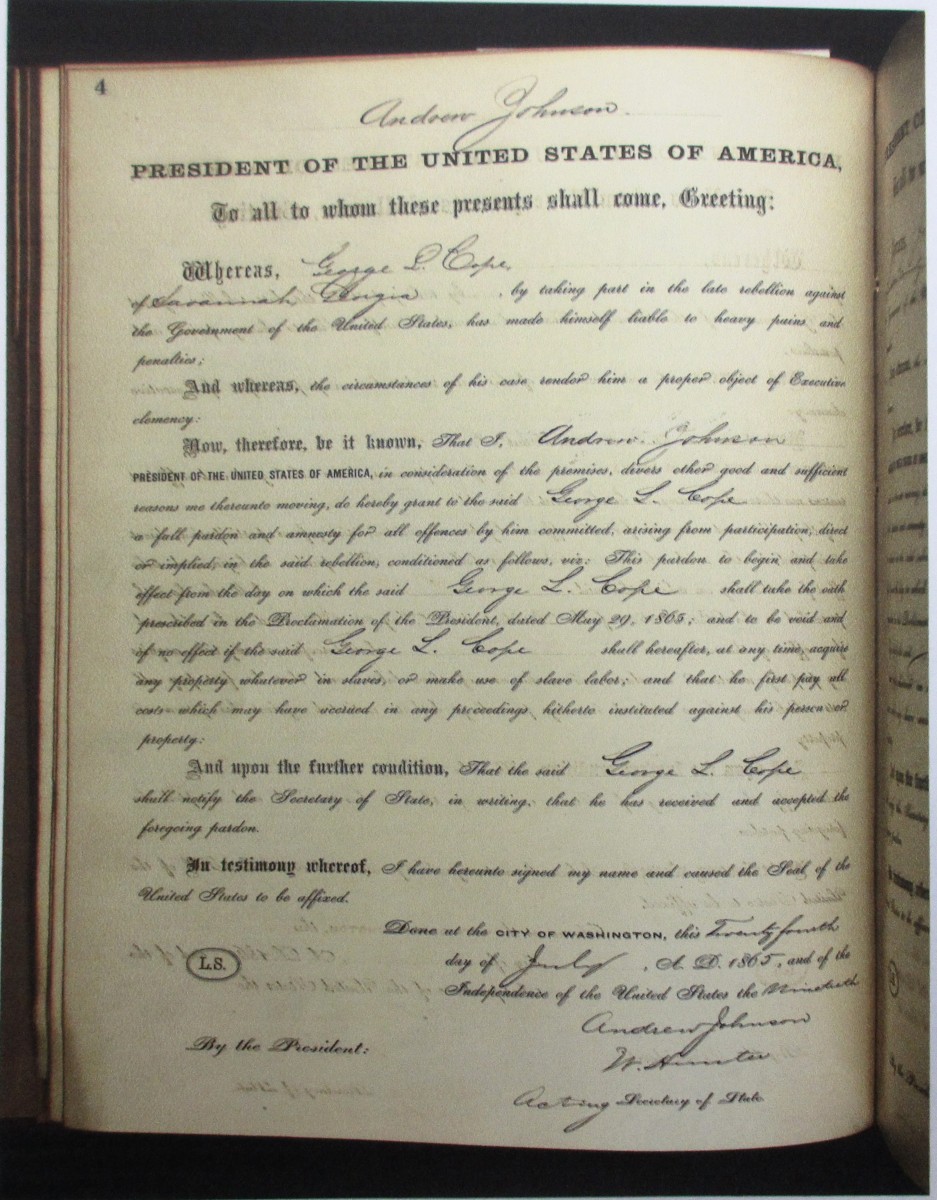 4
Andrew Johnson
PRESIDENT OF THE UNITED STATES OF AMERICA,
To all to whom these presents shall come, Greeting:
Whereas, George L. Cope,
of Savannah Georgia , by taking part in the late rebellion against
the Government of the United States, has made himself liable to heavy pains and
penalties;
And whereas, the circumstances of his case render him a proper object of Executive
clemency:
Now, therefore, be it known, That I, Andrew Johnson
PRESIDENT OF THE UNITED STATES OF AMERICA, in consideration of the premises, divers other good and sufficient
reasons me thereunto moving, do hereby grant to the said George L. Cope
a full pardon and amnesty for all offences by him committed, arising from participation, direct
or implied, in the said rebellion, conditioned as follows, viz: This pardon to begin and take
effect from the day on which the said George L. Cope shall take the oath
prescribed in the Proclamation of the President, dated May 29, 1865; and to be void and
of no effect if the said George L. Cope shall hereafter, at any time, acquire
any property whatever in slaves, or make use of slave labor; and that he first pay all
costs which may have accrued in any proceedings hitherto instituted against his person or
property:
And upon the further condition, That the said George L. Cope
shall notify the Secretary of State, in writing, that he has received and accepted the
foregoing pardon.
In testimony whereof, I have hereunto signed my name and caused the Seal of the
United States to be affixed.
Done at the CITY OF WASHINGTON, this Twenty fourth
L.S. day of July , A. D. 1865, and of the
Independence of the United States the Ninetieth
Andrew Johnson
By the President:
W. Hunter
Acting Secretary of State